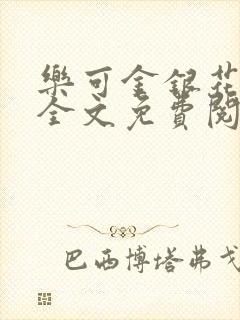 樂可金銀花
全文免費閱
巴西博塔弗戈